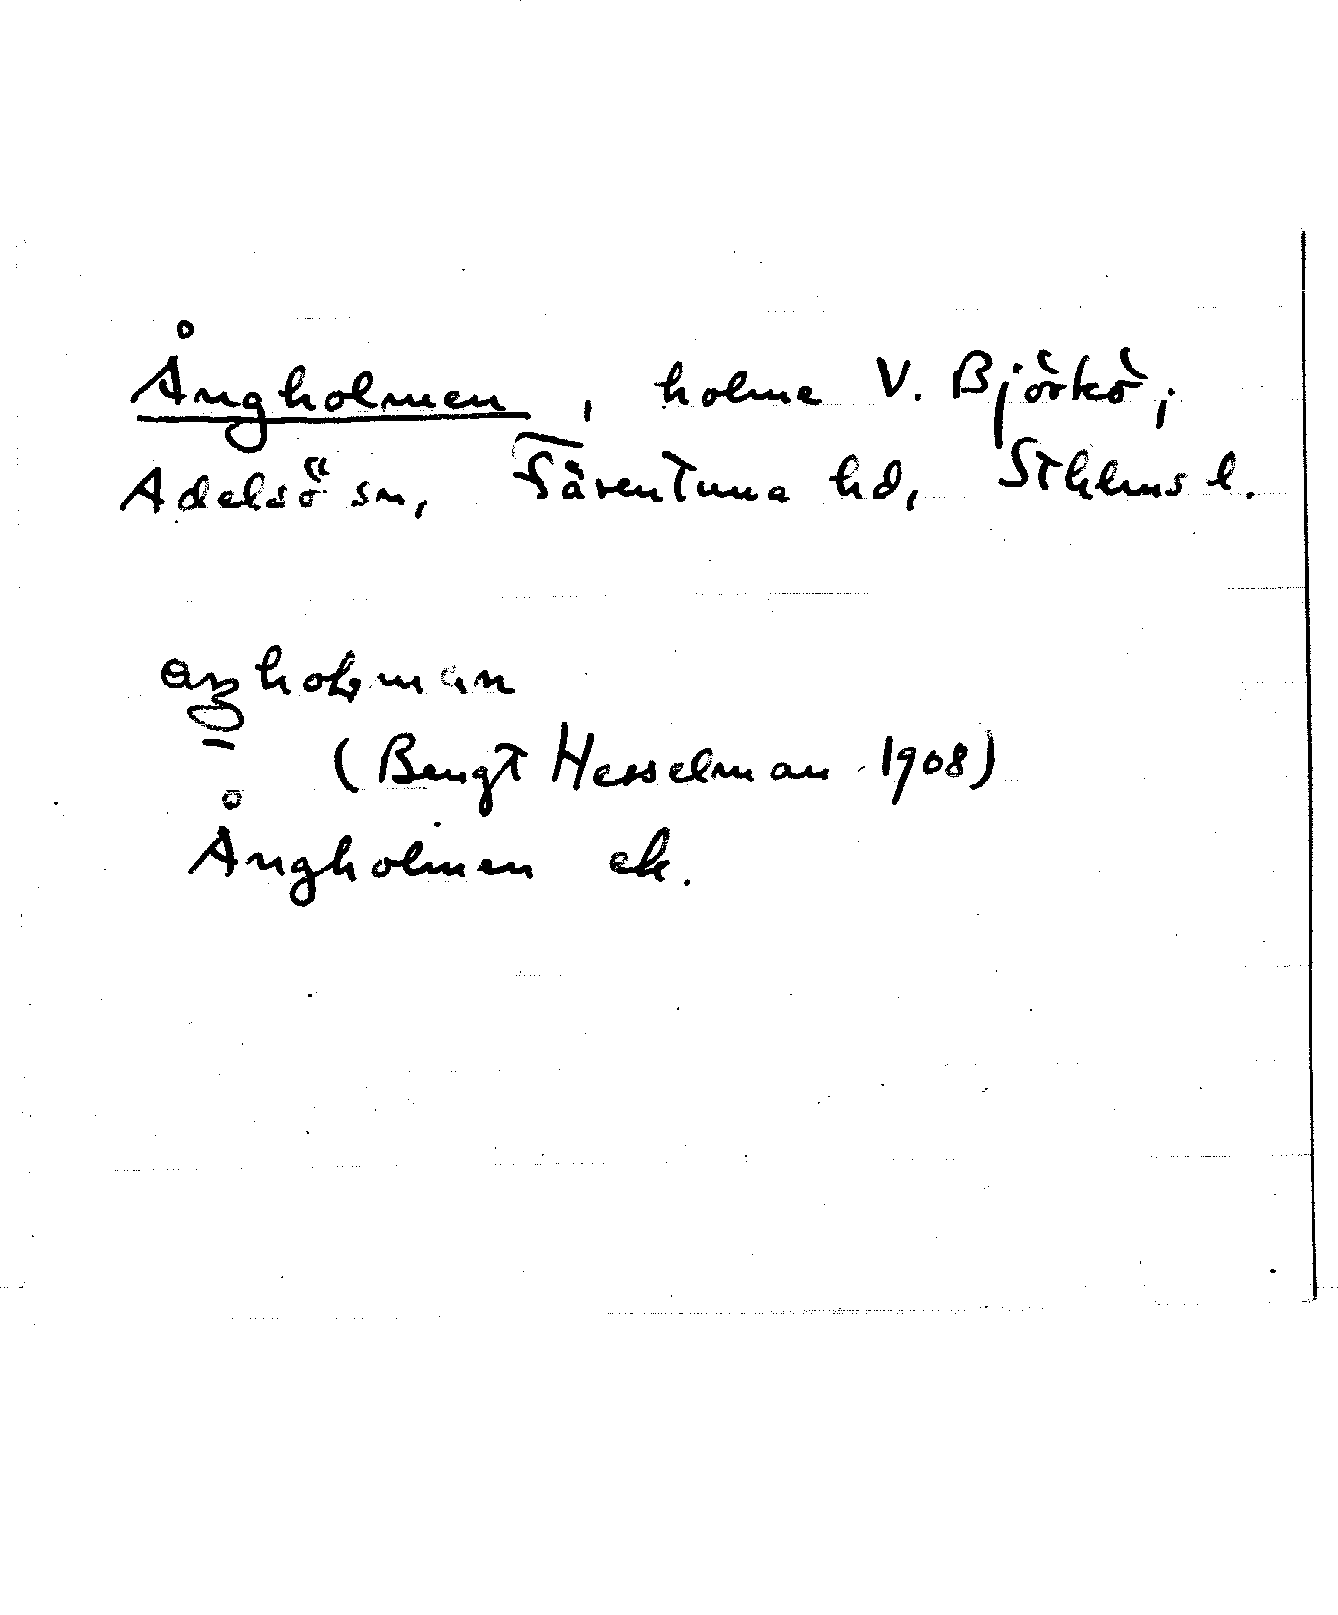 Ångholmen, holme V. Björkö,
Adelsö sn, Färentuna hd, Sthlms l.
(Bengt Hesselman 1908)
Ångholmen ek.